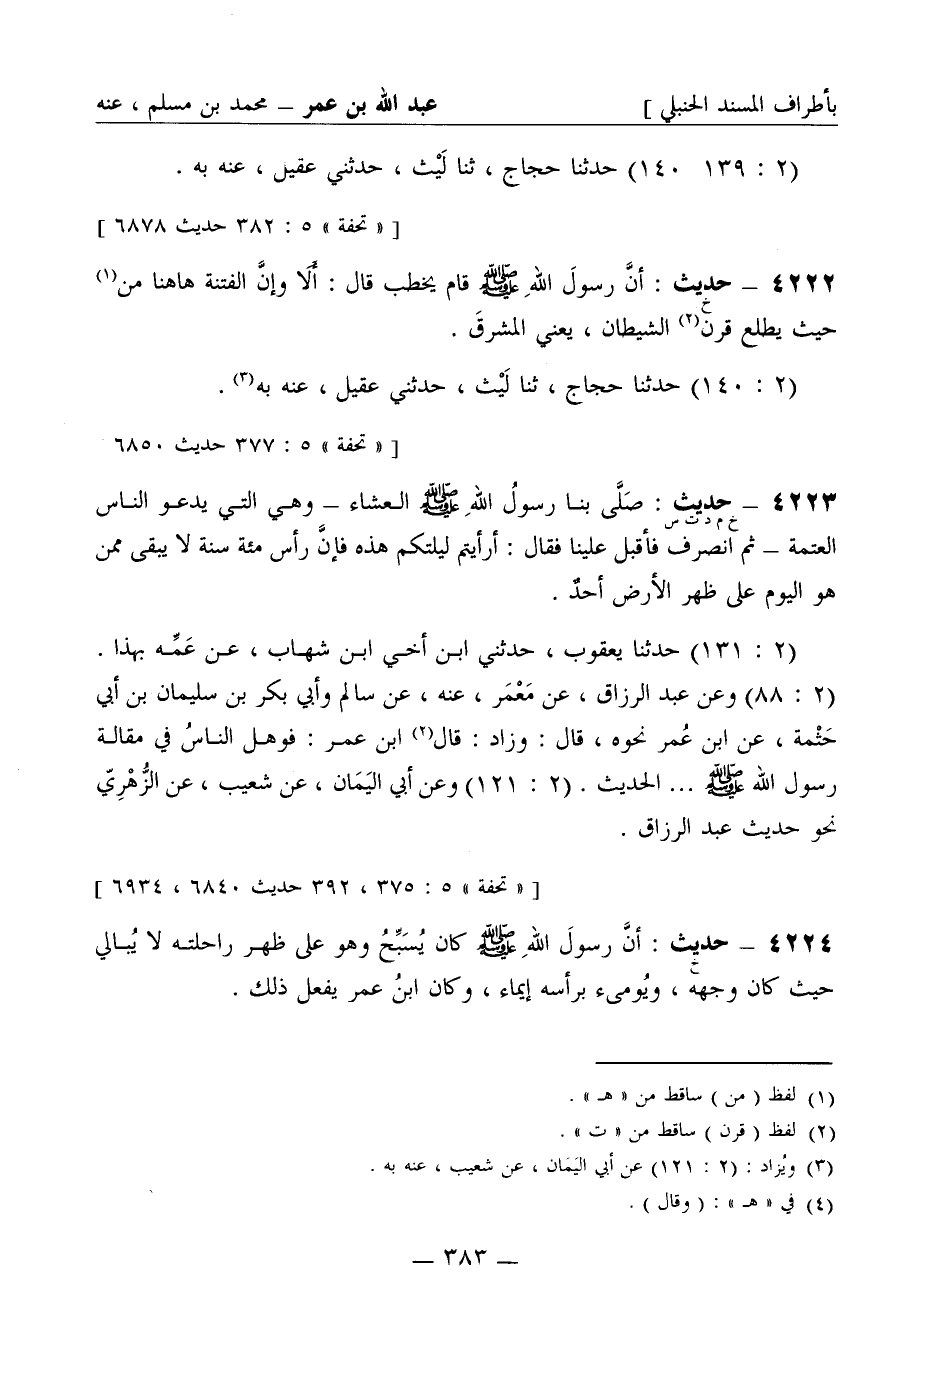 بأطراف المسند الحنبلي ] عبد الله بن عمر – محمد بن مسلم ، عنه
(٢ : ١٣٩ ١٤٠) حدثنا حجاج ، ثنا لَيْث ، حدثني عقيل ، عنه به .
[ « تحفة » ٥ : ٣٨٢ حديث ٦٨٧٨ ]
٤٢٢٢ – حديث : أنَّ رسولَ اللهِ ﷺ قام يخطب قال : أَلَا وإنَّ الفتنة هاهنا من(١)
خ
حيث يطلع قرن(٢) الشيطان ، يعني المشرقَ .
(٢ : ١٤٠) حدثنا حجاج ، ثنا لَيْث ، حدثني عقيل ، عنه به(٣) .
[ « تحفة » ٥ : ٣٧٧ حديث ٦٨٥٠
٤٢٢٣ – حديث : صَلَّى بنا رسولُ اللهِ ﷺ العشاء – وهي التي يدعو الناس
خ م د ت س
العتمة – ثم انصرف فأقبل علينا فقال : أرأيتم ليلتكم هذه فإنَّ رأس مئة سنة لا يبقى ممن
هو اليوم على ظهر الأرض أحدٌ .
(٢ : ١٣١) حدثنا يعقوب ، حدثني ابن أخي ابن شهاب ، عن عَمِّه بهذا .
(٢ : ٨٨) وعن عبد الرزاق ، عن مَعْمَر ، عنه ، عن سالم وأبي بكر بن سليمان بن أبي
حَثْمة ، عن ابن عُمر نحوه ، قال : وزاد : قال(٢) ابن عمر : فوهل الناسُ في مقالة
رسول الله ﷺ ... الحديث . (٢ : ١٢١) وعن أبي اليَمَان ، عن شعيب ، عن الزُّهْرِيّ
نحو حديث عبد الرزاق .
[ « تحفة » ٥ : ٣٧٥ ، ٣٩٢ حديث ٦٨٤٠ ، ٦٩٣٤ ]
٤٢٢٤ – حديث : أنَّ رسولَ اللهِ ﷺ كان يُسَبِّحُ وهو على ظهر راحلته لا يُبالي
خ
حيث كان وجهه ، ويُومىء برأسه إيماء ، وكان ابنُ عمر يفعل ذلك .
(١) لفظ ( من ) ساقط من « هـ » .
(٢) لفظ ( قرن ) ساقط من « ت » .
(٣) ويُزاد : (٢ : ١٢١) عن أبي اليَمَان ، عن شعيب ، عنه به .
(٤) في « هـ » : ( وقال ) .
– ٣٨٣ –